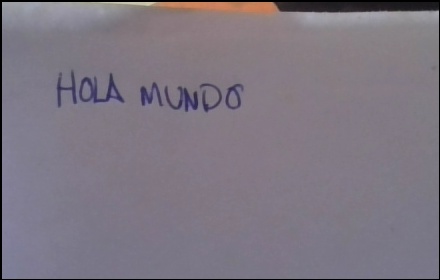 HOLA MUNDO